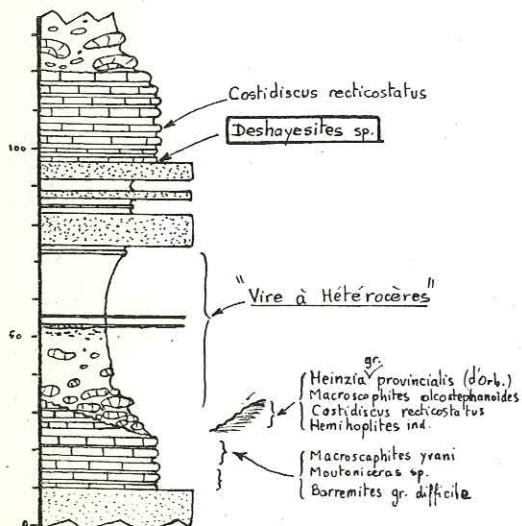 Costidiscus recticostatus
Deshayesites sp.
100
"Vire à Hétérocères"
50
gr.
Heinzia provincialis (d'Orb.)
Macroscaphites olcostephanoides
Costidiscus recticostatus
Hemihoplites ind.
Macroscaphites yvani
Moutoniceras sp.
Barremites gr. difficile
0